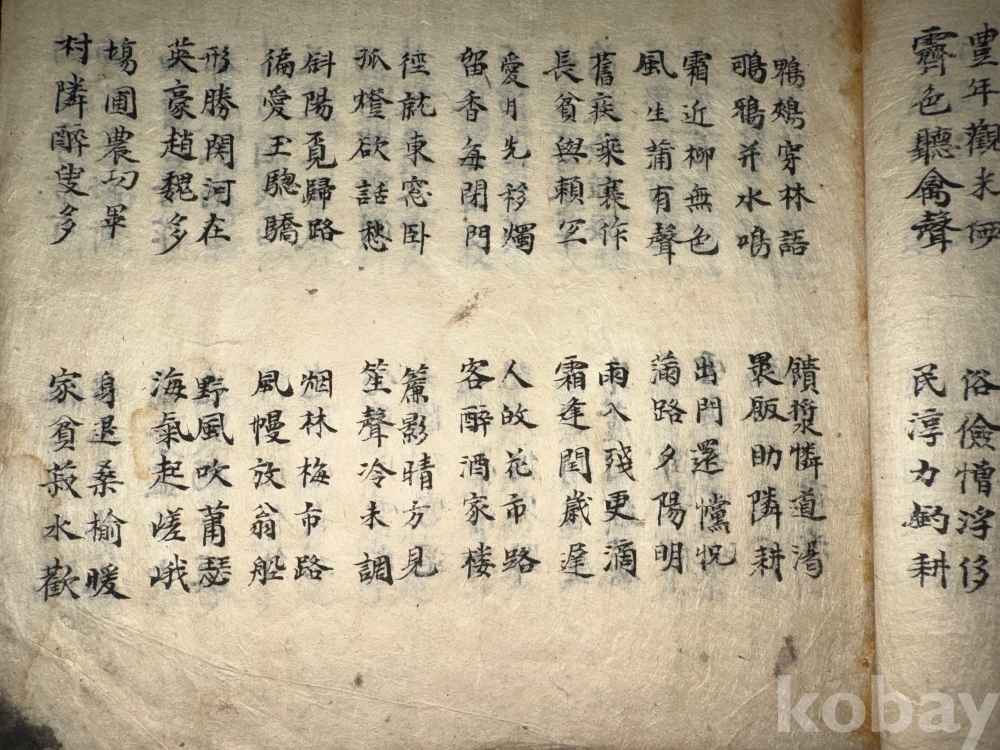 豊年觀米価
霽色聽禽聲
俗儉憎浮侈
民淳力釣耕
鵯鵊穿林語
鴉并水鳴
霜近柳無色
風生蒲有聲
舊疾乘衰作
長貧與賴
愛月先移燭
留香每閉門
徑就東窓卧
孤橙欲話愁
斜陽覓歸路
偏愛玉驄驕
形勝関河在
英豪趙魏多
塲圃農功畢
村隣醉叟多
饋漿憐道渴
裹飯助隣耕
出門還懭怳
滿路夕陽明
雨入殘更滴
霜逢閏歲遅
人故花市路
客醉酒家楼
簾影晴方見
笙聲冷未調
烟林梅市路
風幔放翁船
野風吹蕭瑟
海氣起嵯峨
身退桑榆暖
家貧菽水歡
kobay